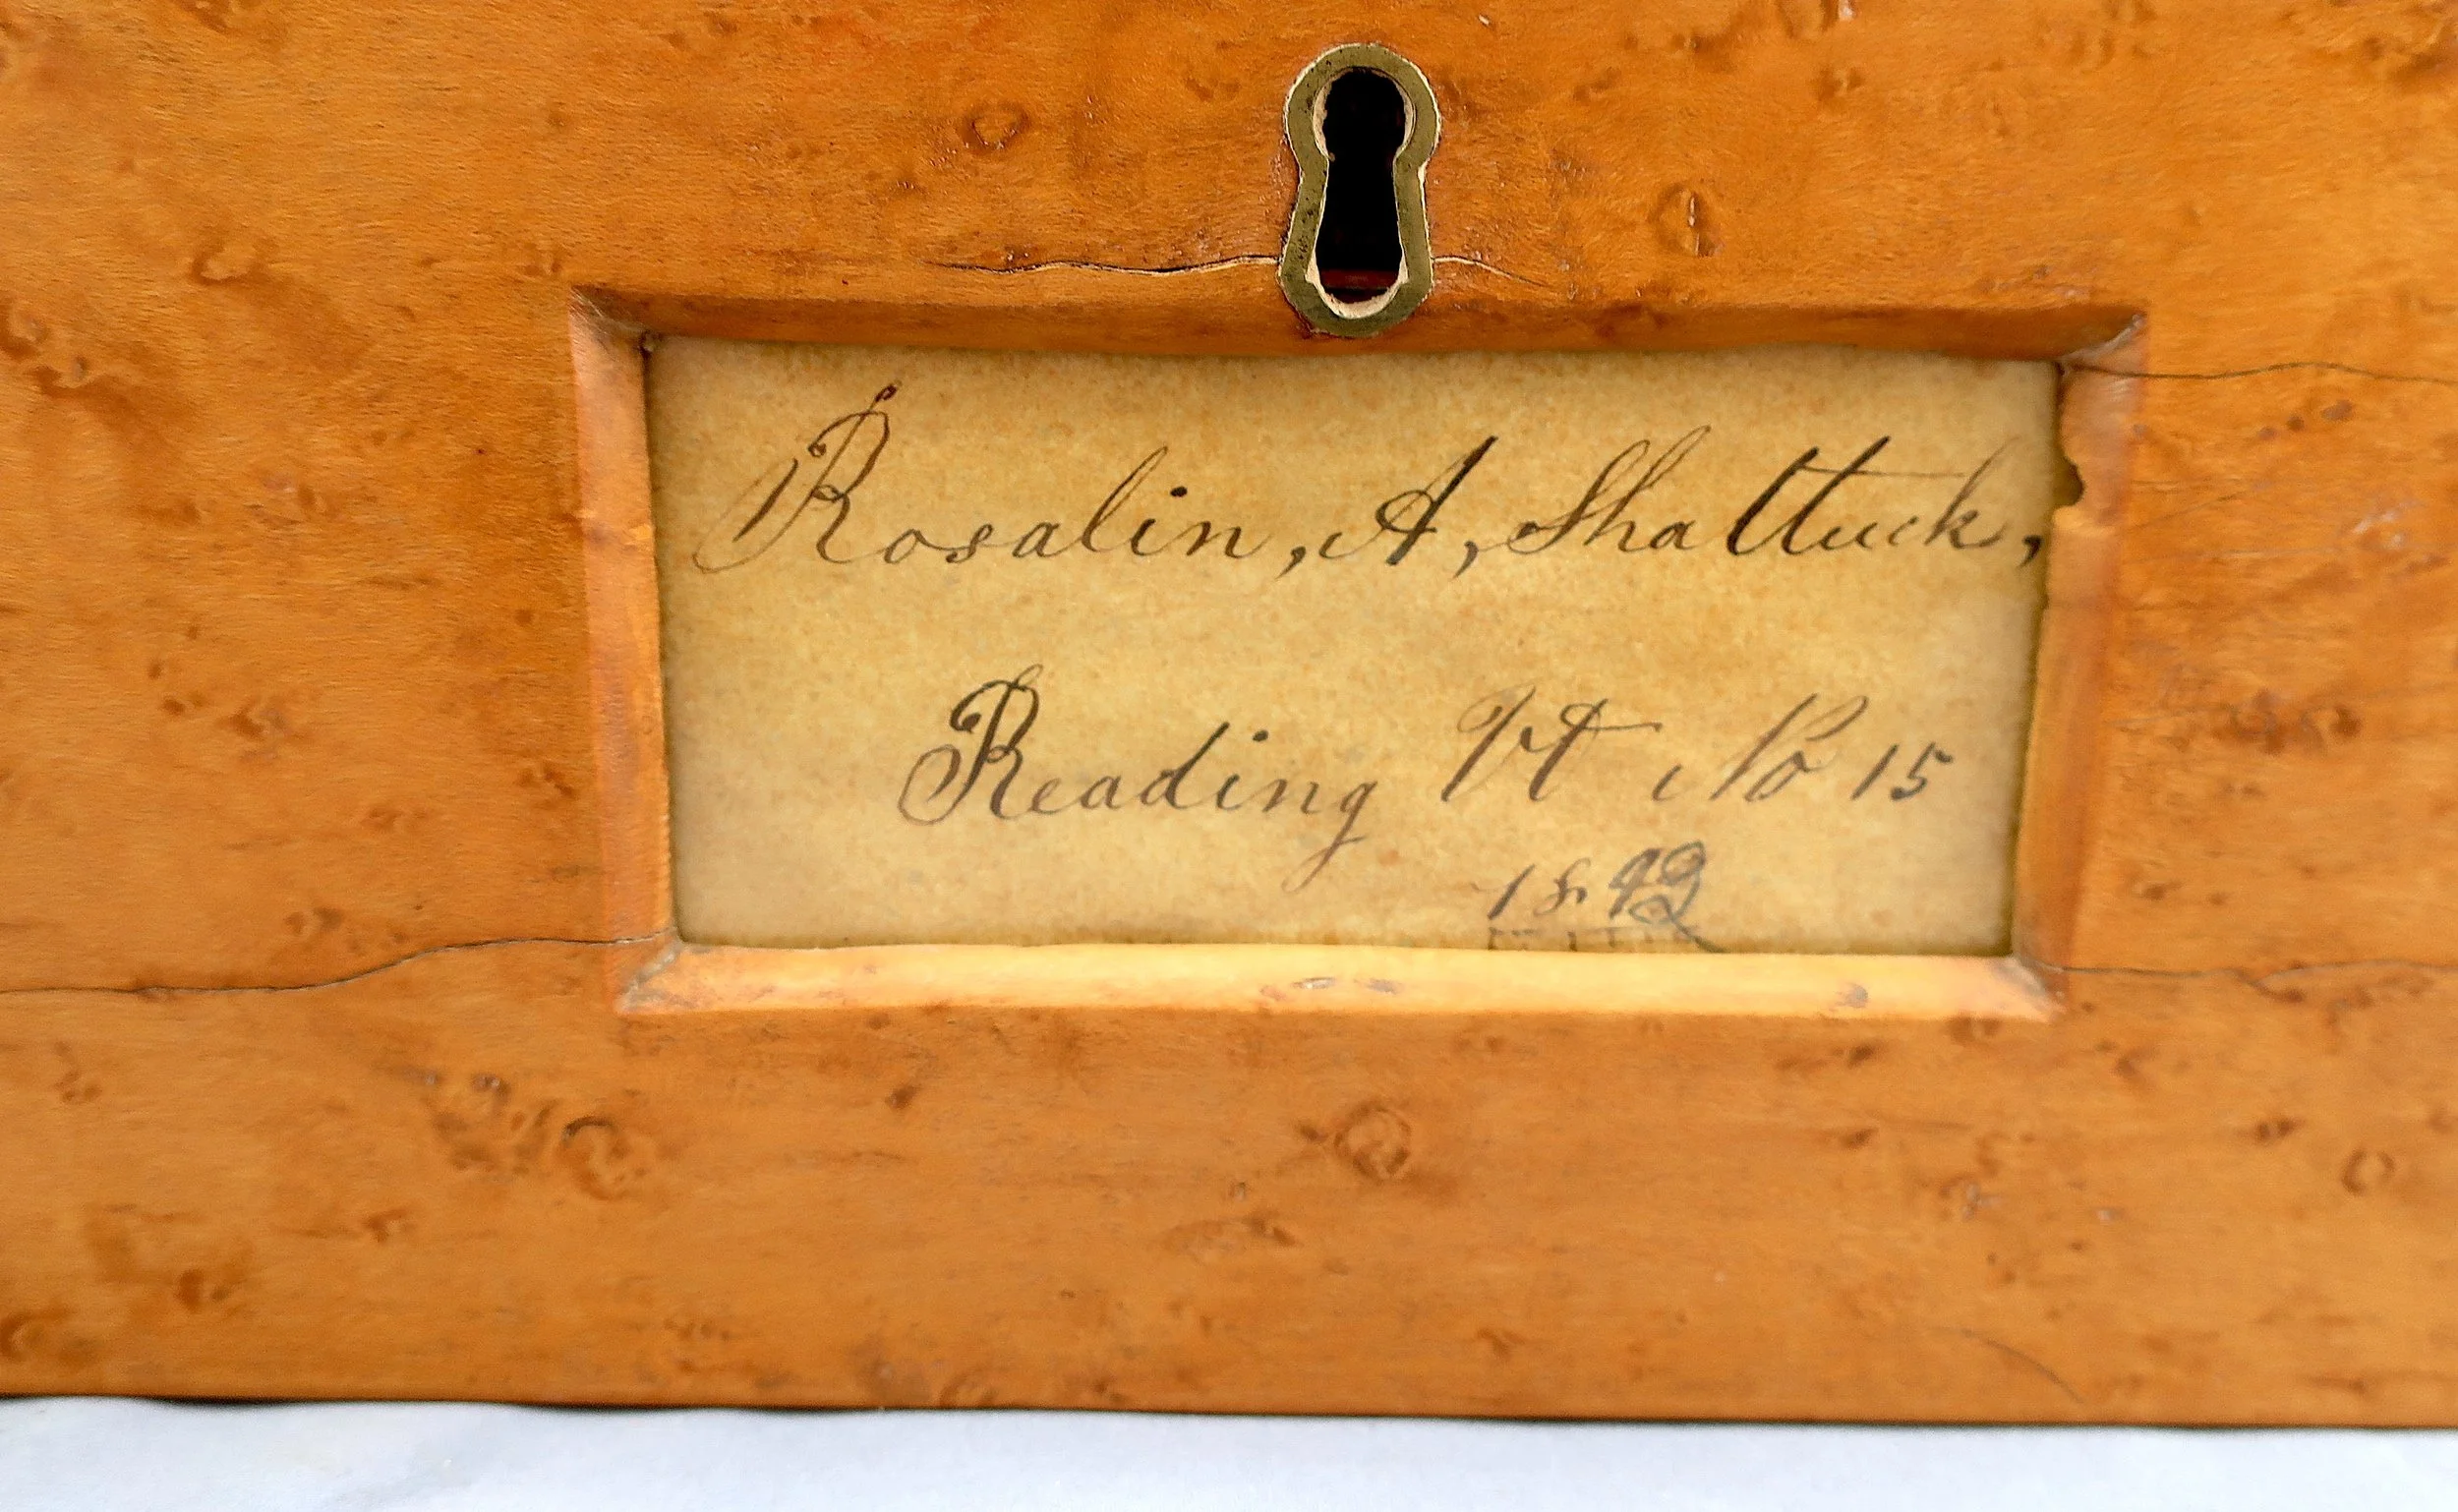 Rosalin, A, Shattuck,
Reading Vt No 15
1842